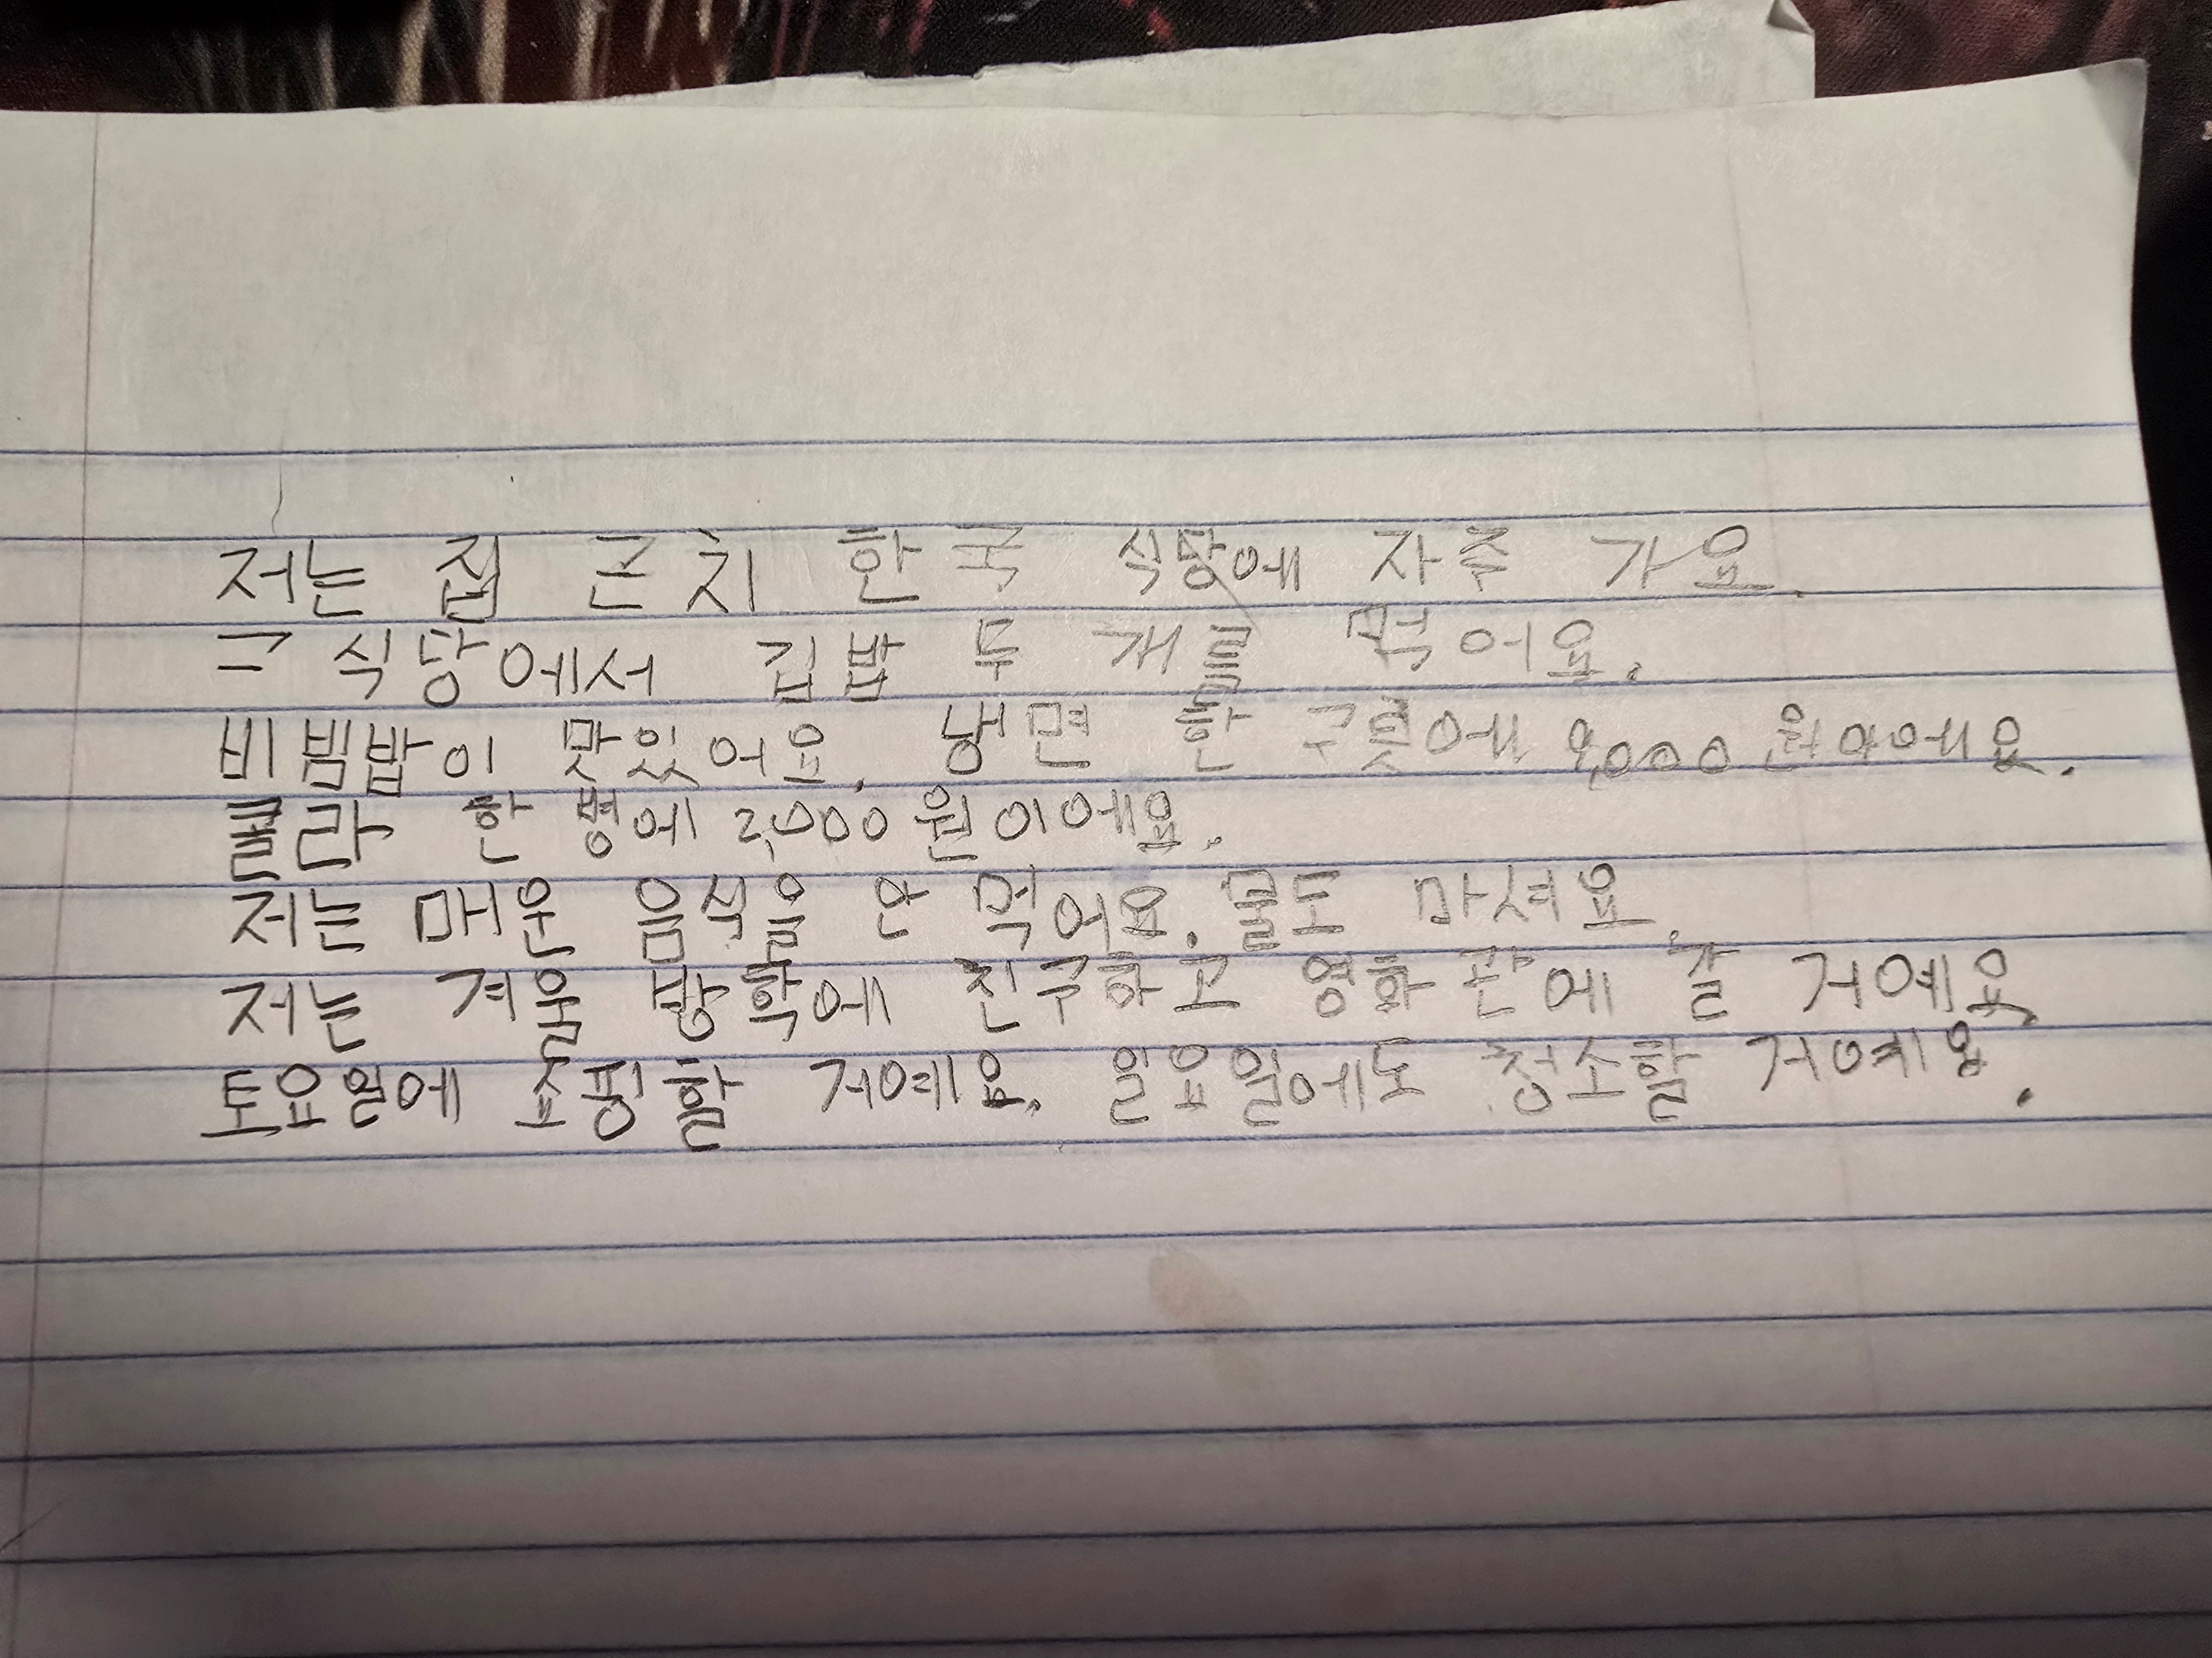 저는 집 근치 한국 식당에 자주 가요.
그 식당에서 김밥 두 개를 먹어요.
비빔밥이 맛있어요. 냉면 한 그릇에 9,000원이에요.
콜라 한 병에 2,000원이에요.
저는 매운 음식을 안 먹어요. 물도 마셔요.
저는 겨울 방학에 친구하고 영화 관에 갈 거예요.
토요일에 쇼핑할 거예요. 일요일에도 청소할 거예요.